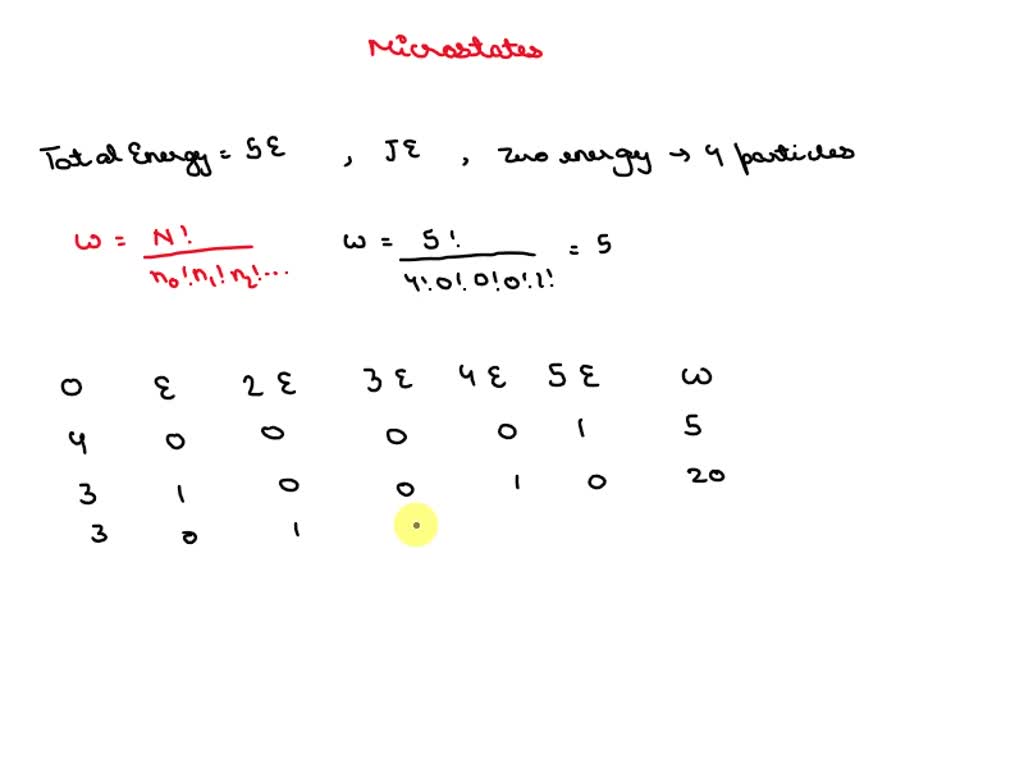 Microstates
Total Energy = 5ε , Jε , Zero energy → 4 particles
ω = N! / n₀!n₁!n₂!... ω = 5! / 4!0!0!0!1! = 5
0 ε 2ε 3ε 4ε 5ε ω
4 0 0 0 0 1 5
3 1 0 0 1 0 20
3 0 1